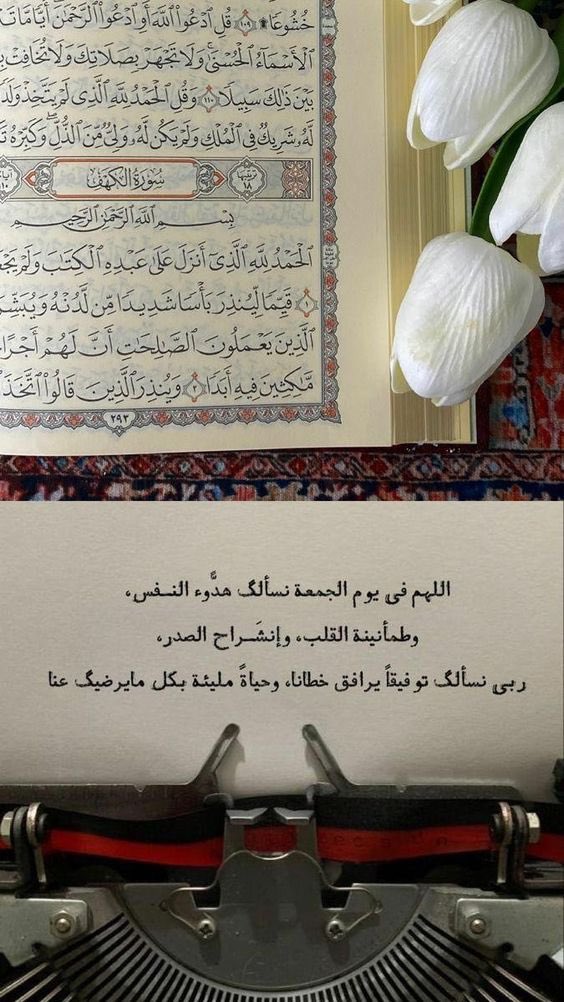 خُشُوعًا ۩ ١٠٩ قُلِ ٱدْعُوا۟ ٱللَّهَ أَوِ ٱدْعُوا۟ ٱلرَّحْمَـٰنَ أَيًّا مَّا
ٱلْأَسْمَآءُ ٱلْحُسْنَىٰ وَلَا تَجْهَرْ بِصَلَاتِكَ وَلَا تُخَافِتْ
بَيْنَ ذَٰلِكَ سَبِيلًا ١١٠ وَقُلِ ٱلْحَمْدُ لِلَّهِ ٱلَّذِى لَمْ يَتَّخِذْ وَلَد
لَّهُۥ شَرِيكٌ فِى ٱلْمُلْكِ وَلَمْ يَكُن لَّهُۥ وَلِىٌّ مِّنَ ٱلذُّلِّ وَكَبِّرْهُ
ترتيبها ١٨ سُورَةُ الكَهْفِ ١١٠
بِسْمِ ٱللَّهِ ٱلرَّحْمَـٰنِ ٱلرَّحِيمِ
ٱلْحَمْدُ لِلَّهِ ٱلَّذِىٓ أَنزَلَ عَلَىٰ عَبْدِهِ ٱلْكِتَـٰبَ وَلَمْ يَجْعَ
١ قَيِّمًا لِّيُنذِرَ بَأْسًا شَدِيدًا مِّن لَّدُنْهُ وَيُبَشِّرَ
ٱلَّذِينَ يَعْمَلُونَ ٱلصَّـٰلِحَـٰتِ أَنَّ لَهُمْ أَجْرًا
مَّـٰكِثِينَ فِيهِ أَبَدًا ٣ وَيُنذِرَ ٱلَّذِينَ قَالُوا۟ ٱتَّخَذَ
٢٩٣
اللهم في يوم الجمعة نسألك هدًّوء النــفس،
وطمأنينة القلب، وإنشَــراح الصدر،
ربي نسألك توفيقاً يرافق خطانا، وحياةً مليئة بكل مايرضيك عنا